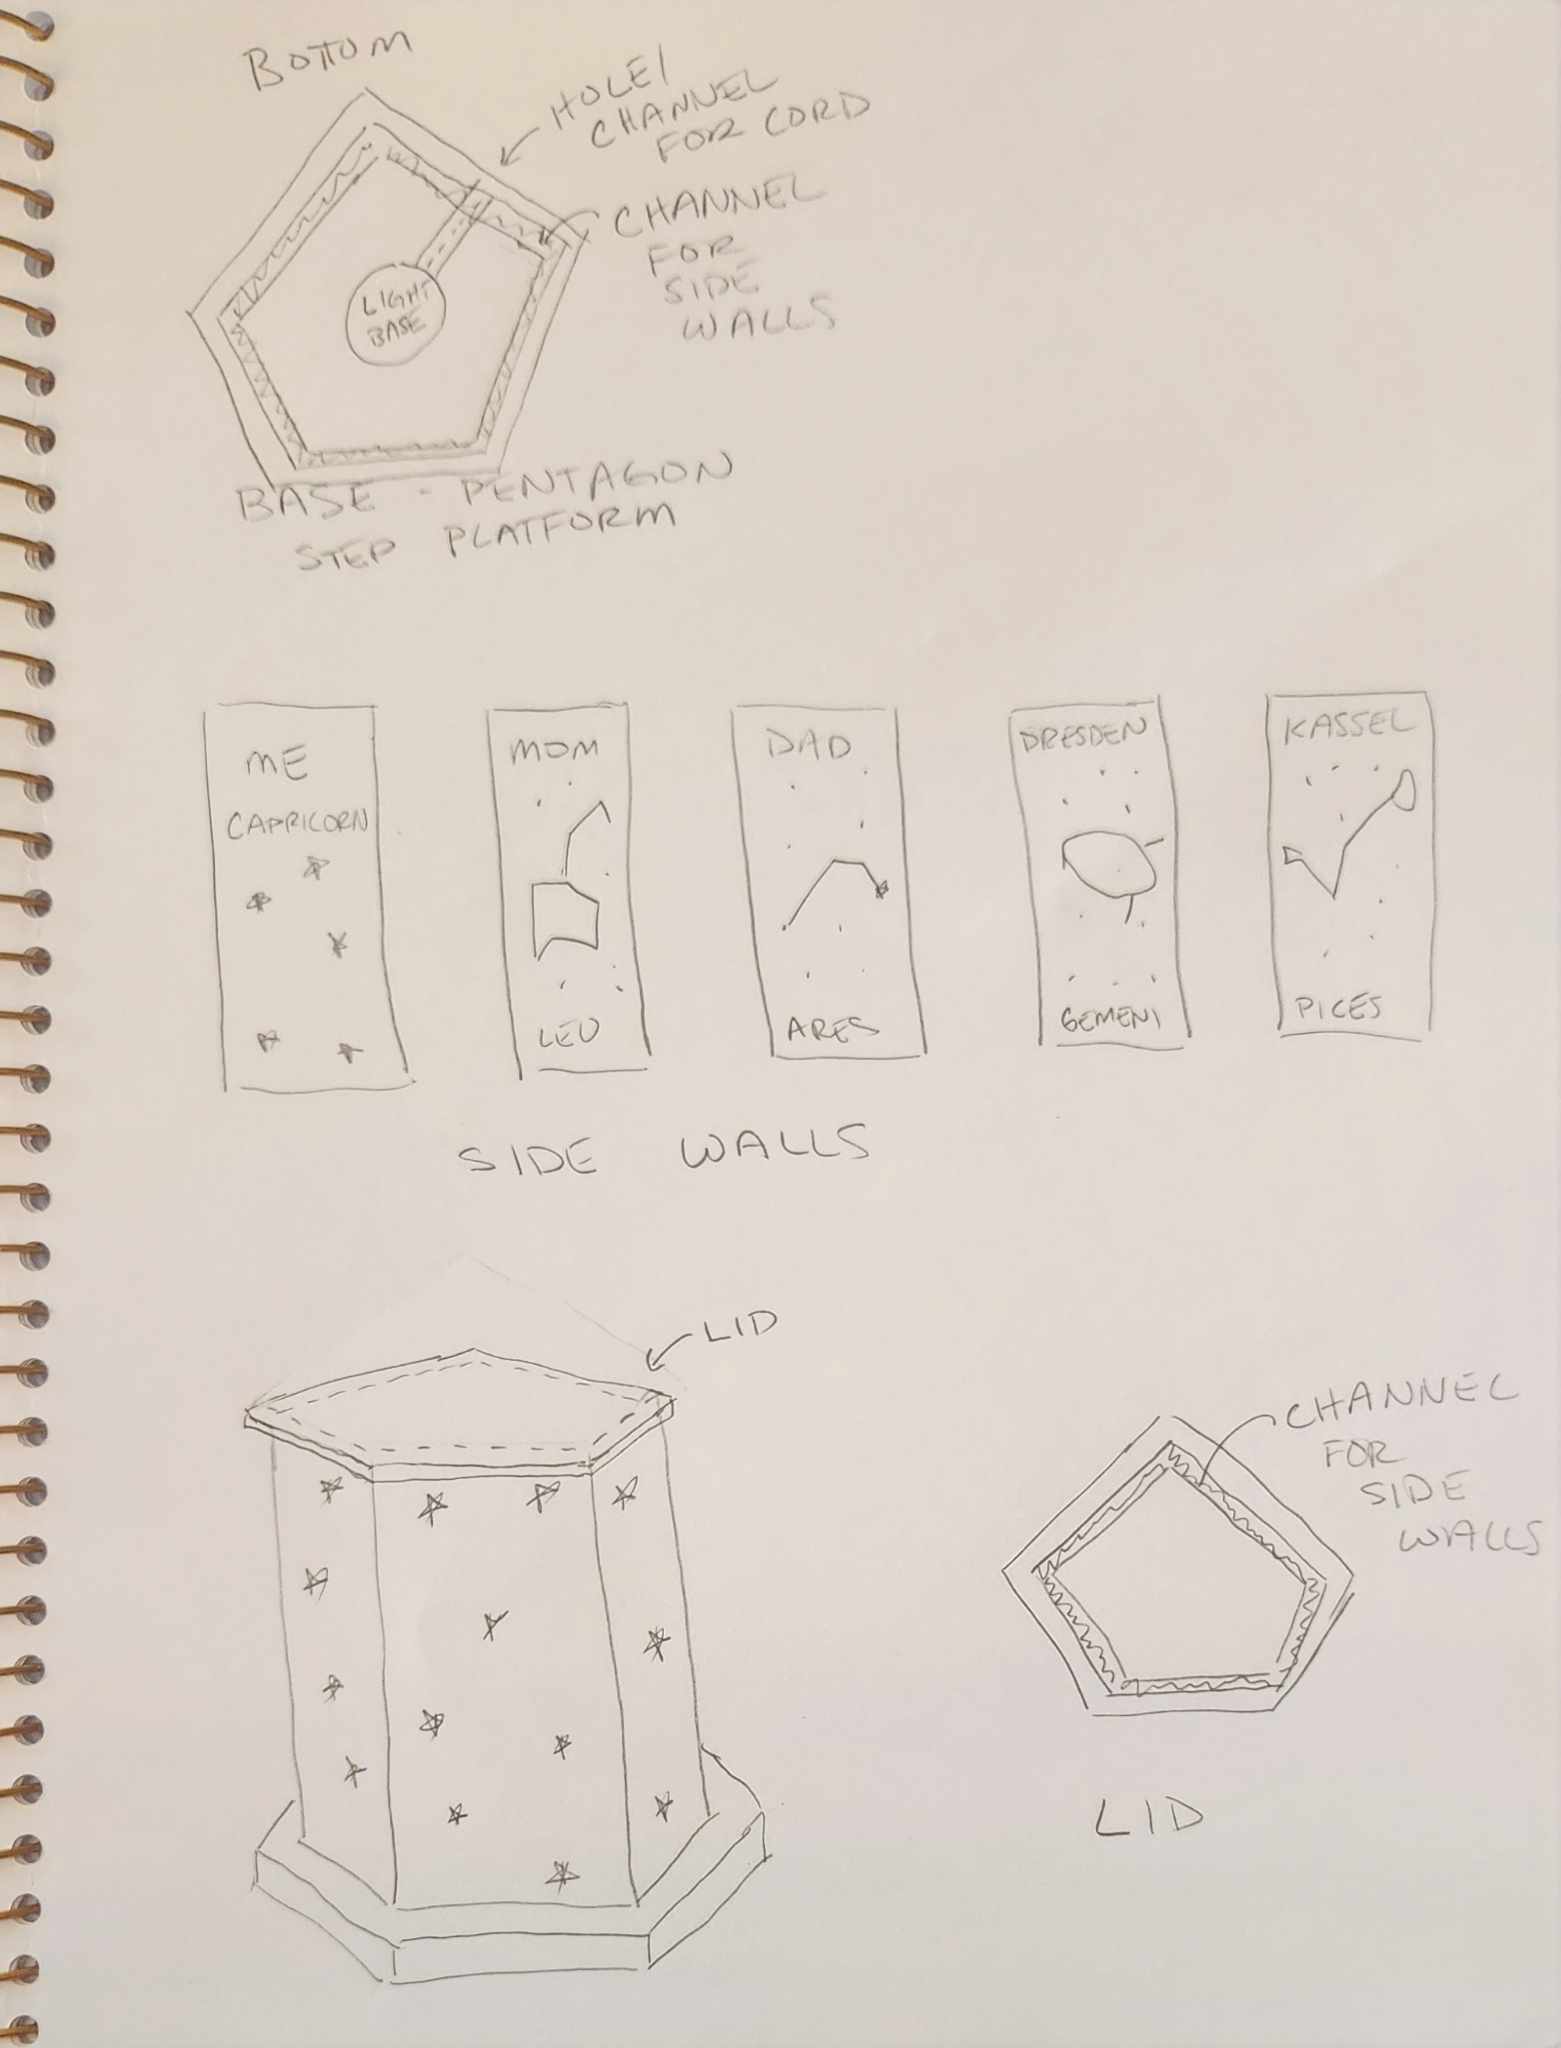 BOTTOM
HOLE/
CHANNEL
FOR CORD
CHANNEL
FOR
SIDE
WALLS
LIGHT
BASE
BASE - PENTAGON
STEP PLATFORM
ME
CAPRICORN
MOM
LEO
DAD
ARES
DRESDEN
GEMENI
KASSEL
PICES
SIDE WALLS
LID
CHANNEL
FOR
SIDE
WALLS
LID